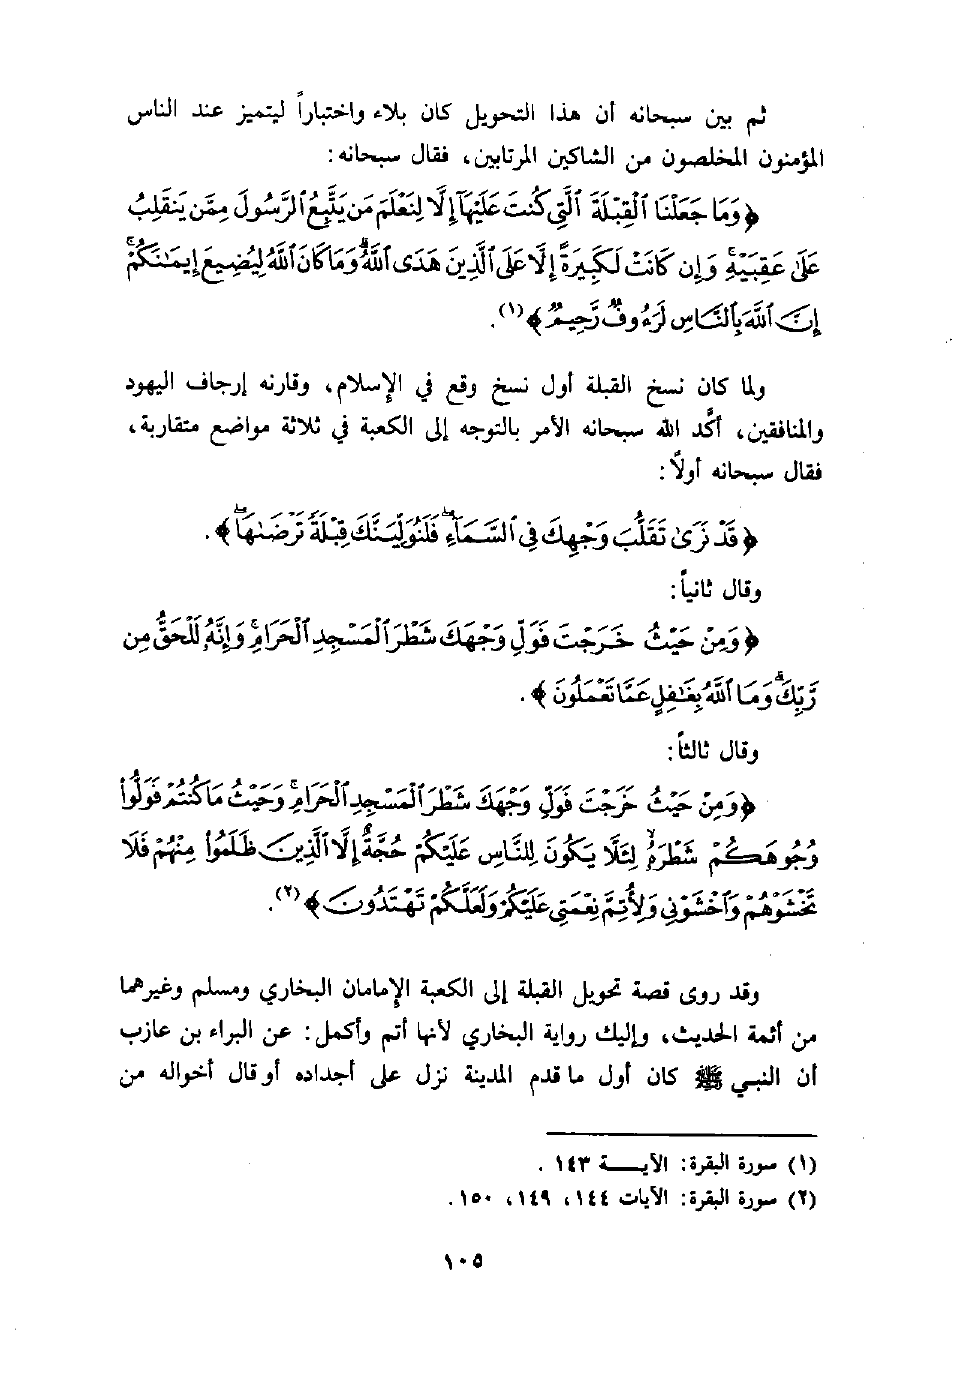 ثم بين سبحانه أن هذا التحويل كان بلاء واختباراً ليتميز عند الناس
المؤمنون المخلصون من الشاكين المرتابين، فقال سبحانه:
﴿وَمَا جَعَلْنَا ٱلْقِبْلَةَ ٱلَّتِى كُنتَ عَلَيْهَآ إِلَّا لِنَعْلَمَ مَن يَتَّبِعُ ٱلرَّسُولَ مِمَّن يَنقَلِبُ
عَلَىٰ عَقِبَيْهِ ۚ وَإِن كَانَتْ لَكَبِيرَةً إِلَّا عَلَى ٱلَّذِينَ هَدَى ٱللَّهُ ۗ وَمَا كَانَ ٱللَّهُ لِيُضِيعَ إِيمَٰنَكُمْ ۚ
إِنَّ ٱللَّهَ بِٱلنَّاسِ لَرَءُوفٌ رَّحِيمٌ﴾(١).
ولما كان نسخ القبلة أول نسخ وقع في الإسلام، وقارنه إرجاف اليهود
والمنافقين، أكَّد الله سبحانه الأمر بالتوجه إلى الكعبة في ثلاثة مواضع متقاربة،
فقال سبحانه أولاً:
﴿قَدْ نَرَىٰ تَقَلُّبَ وَجْهِكَ فِى ٱلسَّمَآءِ ۖ فَلَنُوَلِّيَنَّكَ قِبْلَةً تَرْضَىٰهَا ۚ﴾.
وقال ثانياً:
﴿وَمِنْ حَيْثُ خَرَجْتَ فَوَلِّ وَجْهَكَ شَطْرَ ٱلْمَسْجِدِ ٱلْحَرَامِ ۖ وَإِنَّهُۥ لَلْحَقُّ مِن
رَّبِّكَ ۗ وَمَا ٱللَّهُ بِغَٰفِلٍ عَمَّا تَعْمَلُونَ﴾.
وقال ثالثاً:
﴿وَمِنْ حَيْثُ خَرَجْتَ فَوَلِّ وَجْهَكَ شَطْرَ ٱلْمَسْجِدِ ٱلْحَرَامِ ۚ وَحَيْثُ مَا كُنتُمْ فَوَلُّوا۟
وُجُوهَكُمْ شَطْرَهُۥ لِئَلَّا يَكُونَ لِلنَّاسِ عَلَيْكُمْ حُجَّةٌ إِلَّا ٱلَّذِينَ ظَلَمُوا۟ مِنْهُمْ فَلَا
تَخْشَوْهُمْ وَٱخْشَوْنِى وَلِأُتِمَّ نِعْمَتِى عَلَيْكُمْ وَلَعَلَّكُمْ تَهْتَدُونَ﴾(٢).
وقد روى قصة تحويل القبلة إلى الكعبة الإمامان البخاري ومسلم وغيرهما
من أئمة الحديث، وإليك رواية البخاري لأنها أتم وأكمل: عن البراء بن عازب
أن النبي ﷺ كان أول ما قدم المدينة نزل على أجداده أو قال أخواله من
(١) سورة البقرة: الآيـــة ١٤٣ .
(٢) سورة البقرة: الآيات ١٤٤، ١٤٩، ١٥٠.
١٠٥